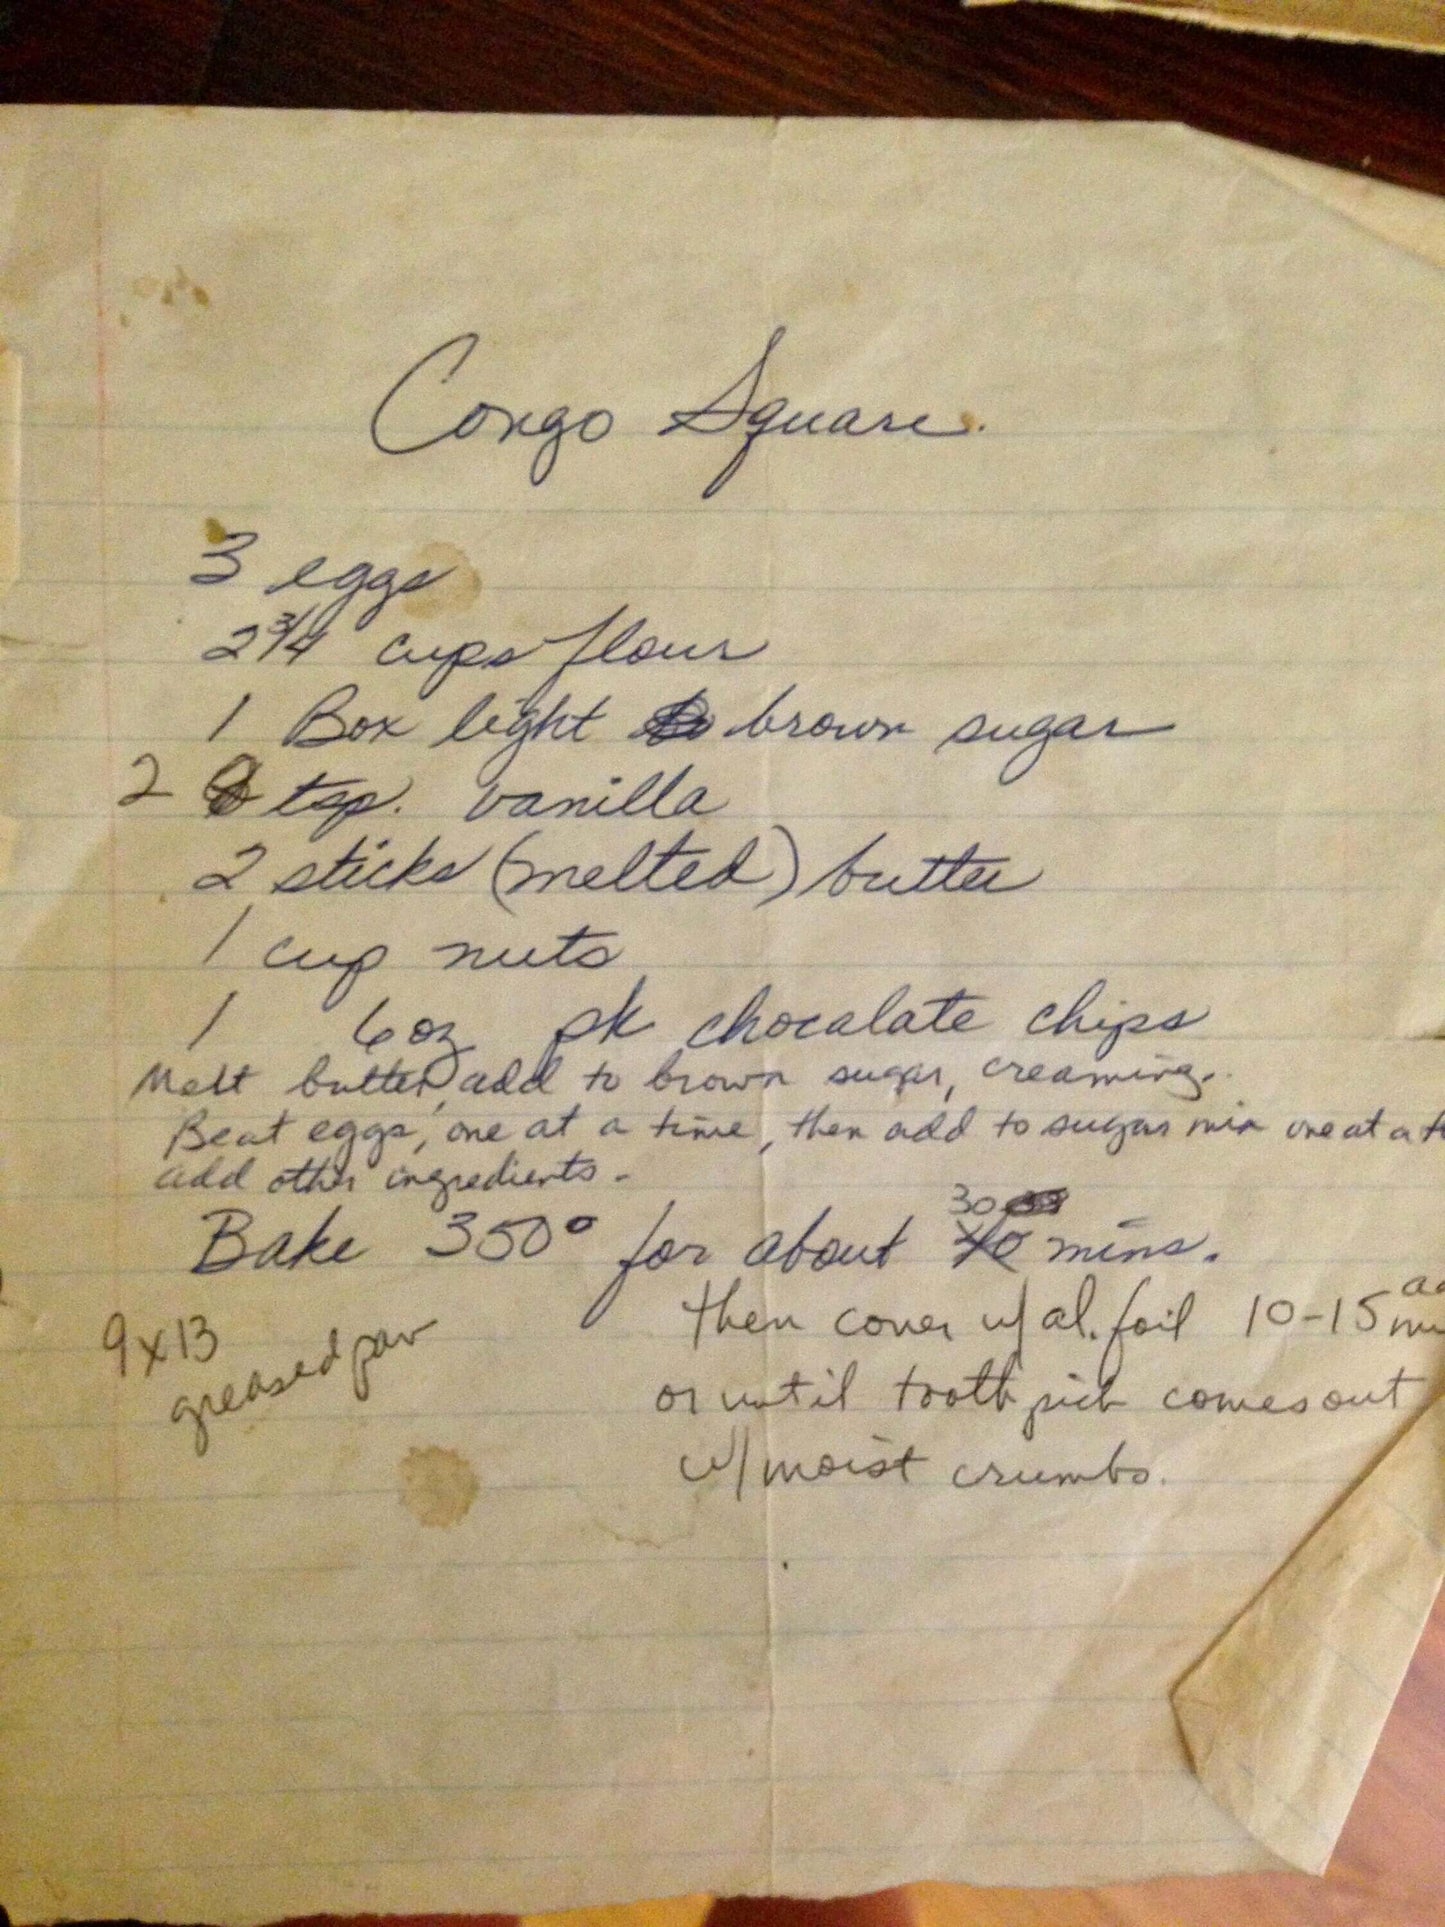 Congo Square.
3 eggs
2 3/4 cups flour
1 Box light brown sugar
2 tsp. vanilla
2 sticks (melted) butter
1 cup nuts
1 6oz pk chocalate chips
Melt butter, add to brown sugar, creaming.
Beat eggs, one at a time, then add to sugar mix one at a
add other ingredients.
30
Bake 350° for about 40 mins.
9x13
greased pan
then cover w/ al. foil 10-15
or until toothpick comes out
w/ moist crumbs.